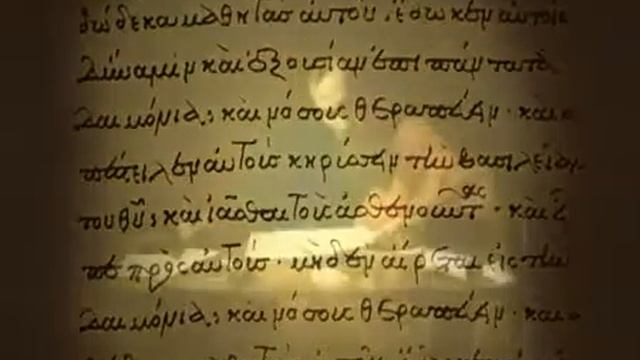 δώδεκα μαθητὰς αὐτοῦ, ἔδωκεν αὐτοῖς
δύναμιν καὶ ἐξουσίαν ἐπὶ πάντα τὰ
δαιμόνια· καὶ νόσους θεραπεύειν· καὶ ἀ
πέστειλεν αὐτοὺς κηρύσσειν τὴν βασιλείαν
τοῦ θῦ· καὶ ἰᾶσθαι τοὺς ἀσθενοῦντας· καὶ εἶ
πε πρὸς αὐτούς· μηδὲν αἴρετε εἰς τὴν
δαιμόνια· καὶ νόσους θεραπεύειν· καὶ